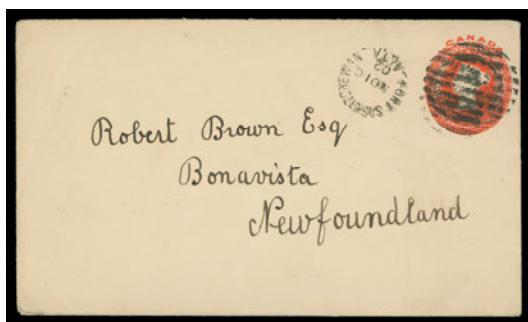 CANADA
FORT SASKATCHEWAN
ALTA
NO 10
02
Robert Brown Esq
Bonavista
Newfoundland